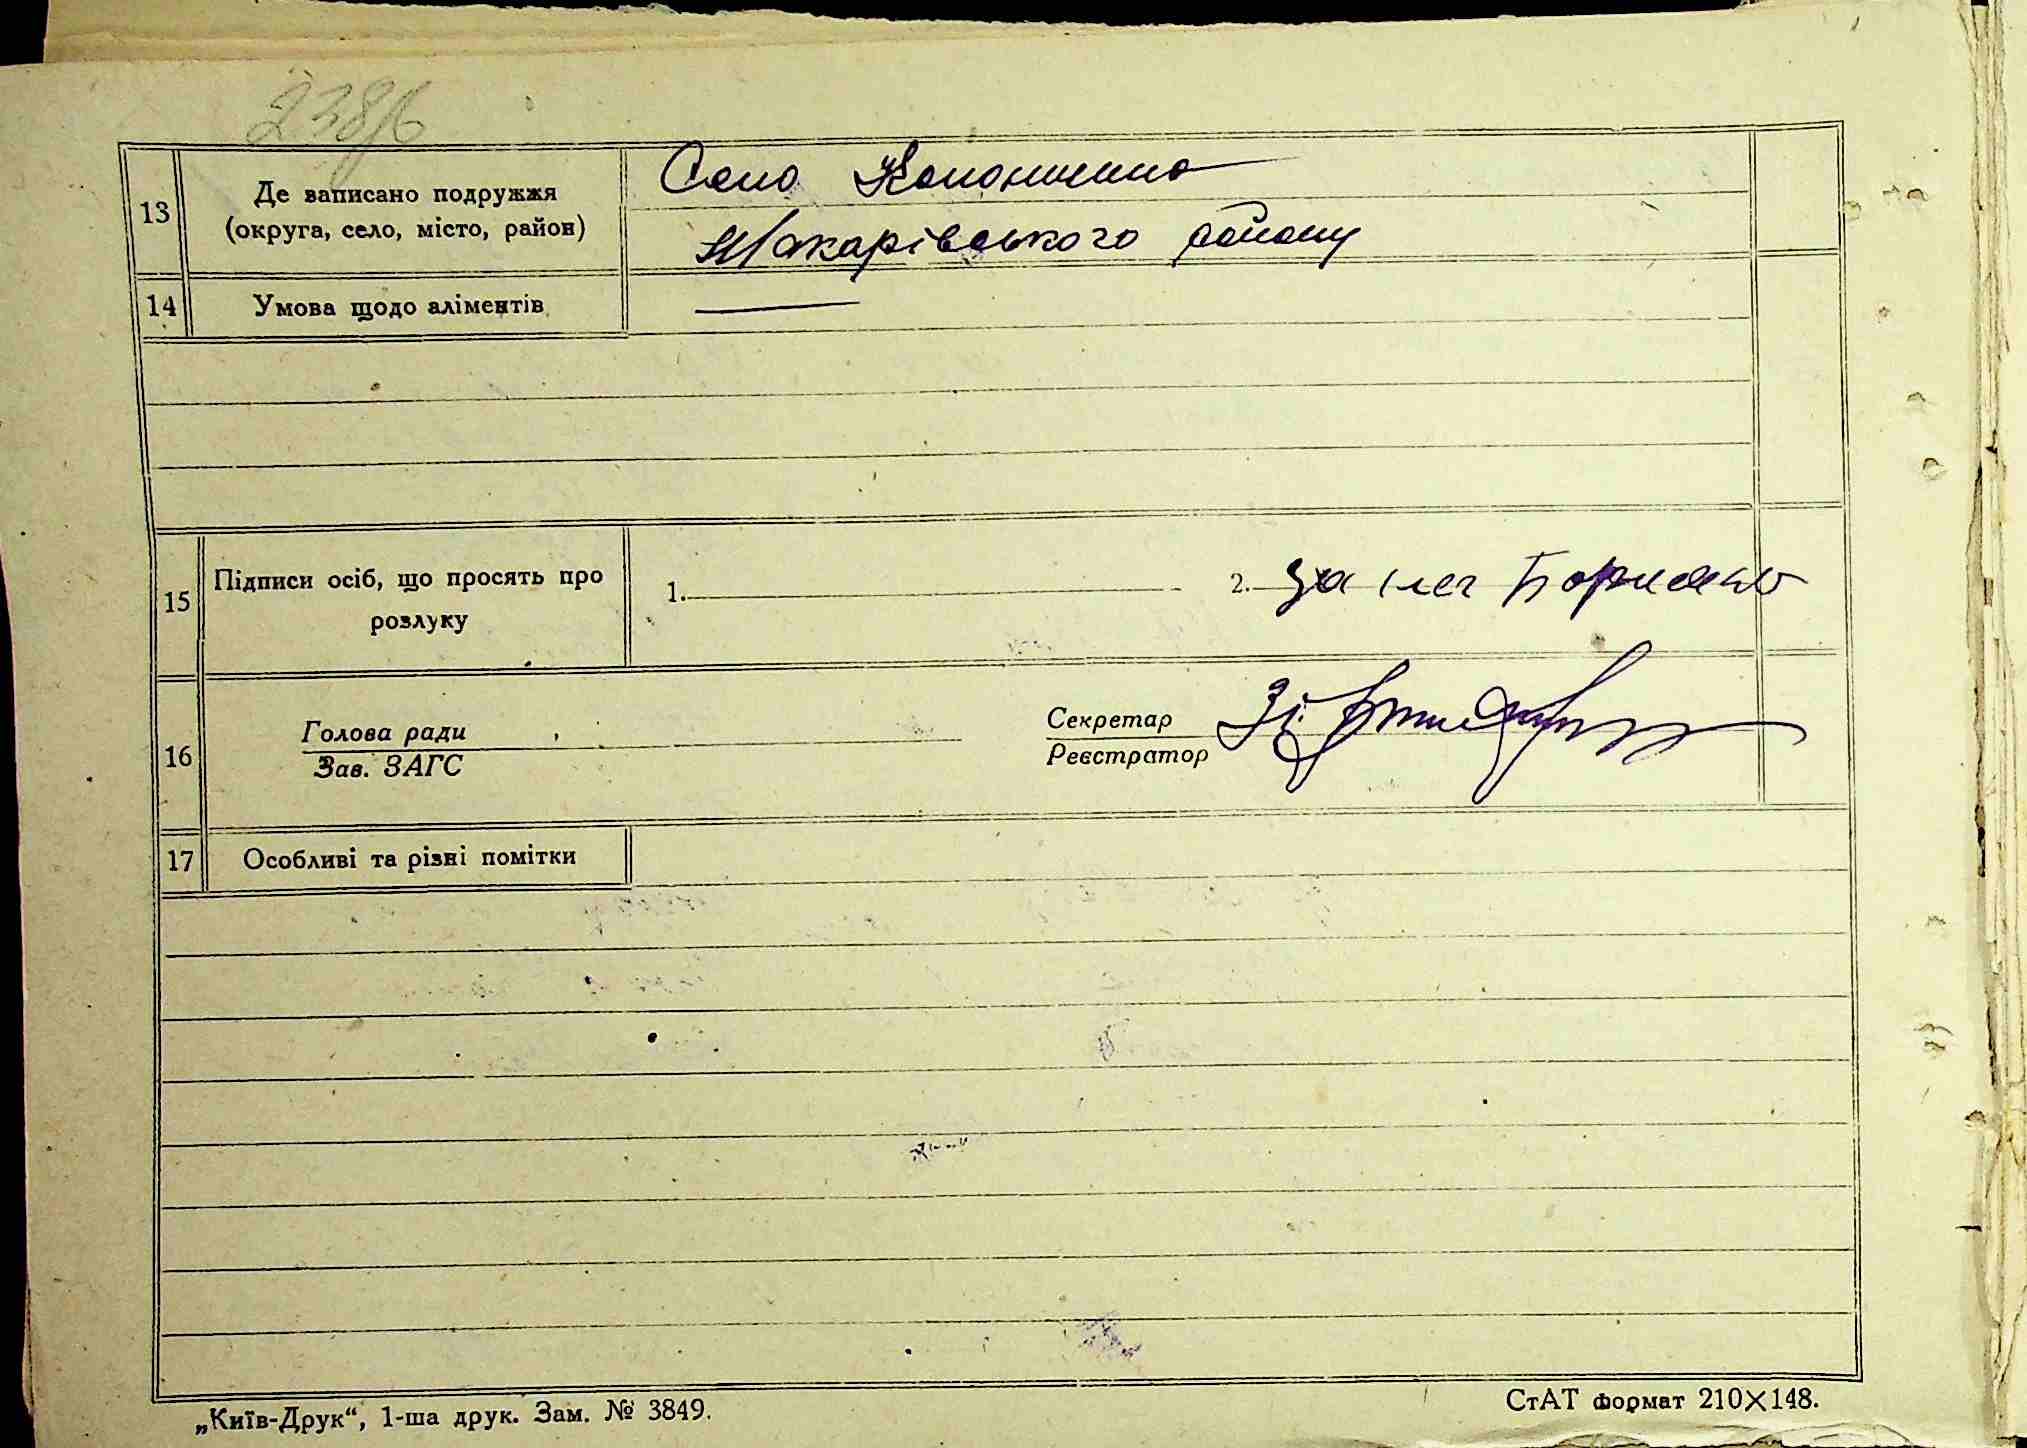 238/6
13
Де записано подружжя
(округа, село, місто, район)
Село Колонщина
Макарівського району
14
Умова щодо аліментів
15
Підписи осіб, що просять про
розлуку
1.
2. за
16
Голова ради
Зав. ЗАГС
Секретар
Реєстратор
17
Особливі та різні помітки
„Київ-Друк“, 1-ша друк. Зам. № 3849.
СтАТ формат 210×148.